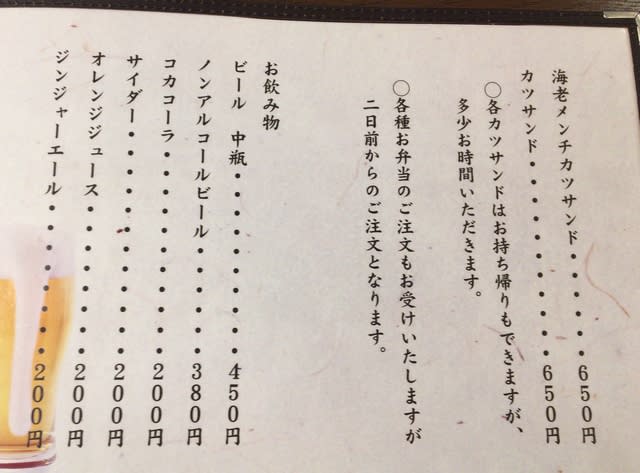 海老メンチカツサンド・・・・・・・650円
カツサンド・・・・・・・・・・・650円
○各カツサンドはお持ち帰りもできますが、
多少お時間いただきます。
○各種お弁当のご注文もお受けいたしますが
二日前からのご注文となります。
お飲み物
ビール 中瓶・・・・・・・・・・450円
ノンアルコールビール・・・・・・・380円
コカコーラ・・・・・・・・・・・200円
サイダー・・・・・・・・・・・・200円
オレンジジュース・・・・・・・・・200円
ジンジャーエール・・・・・・・・・200円